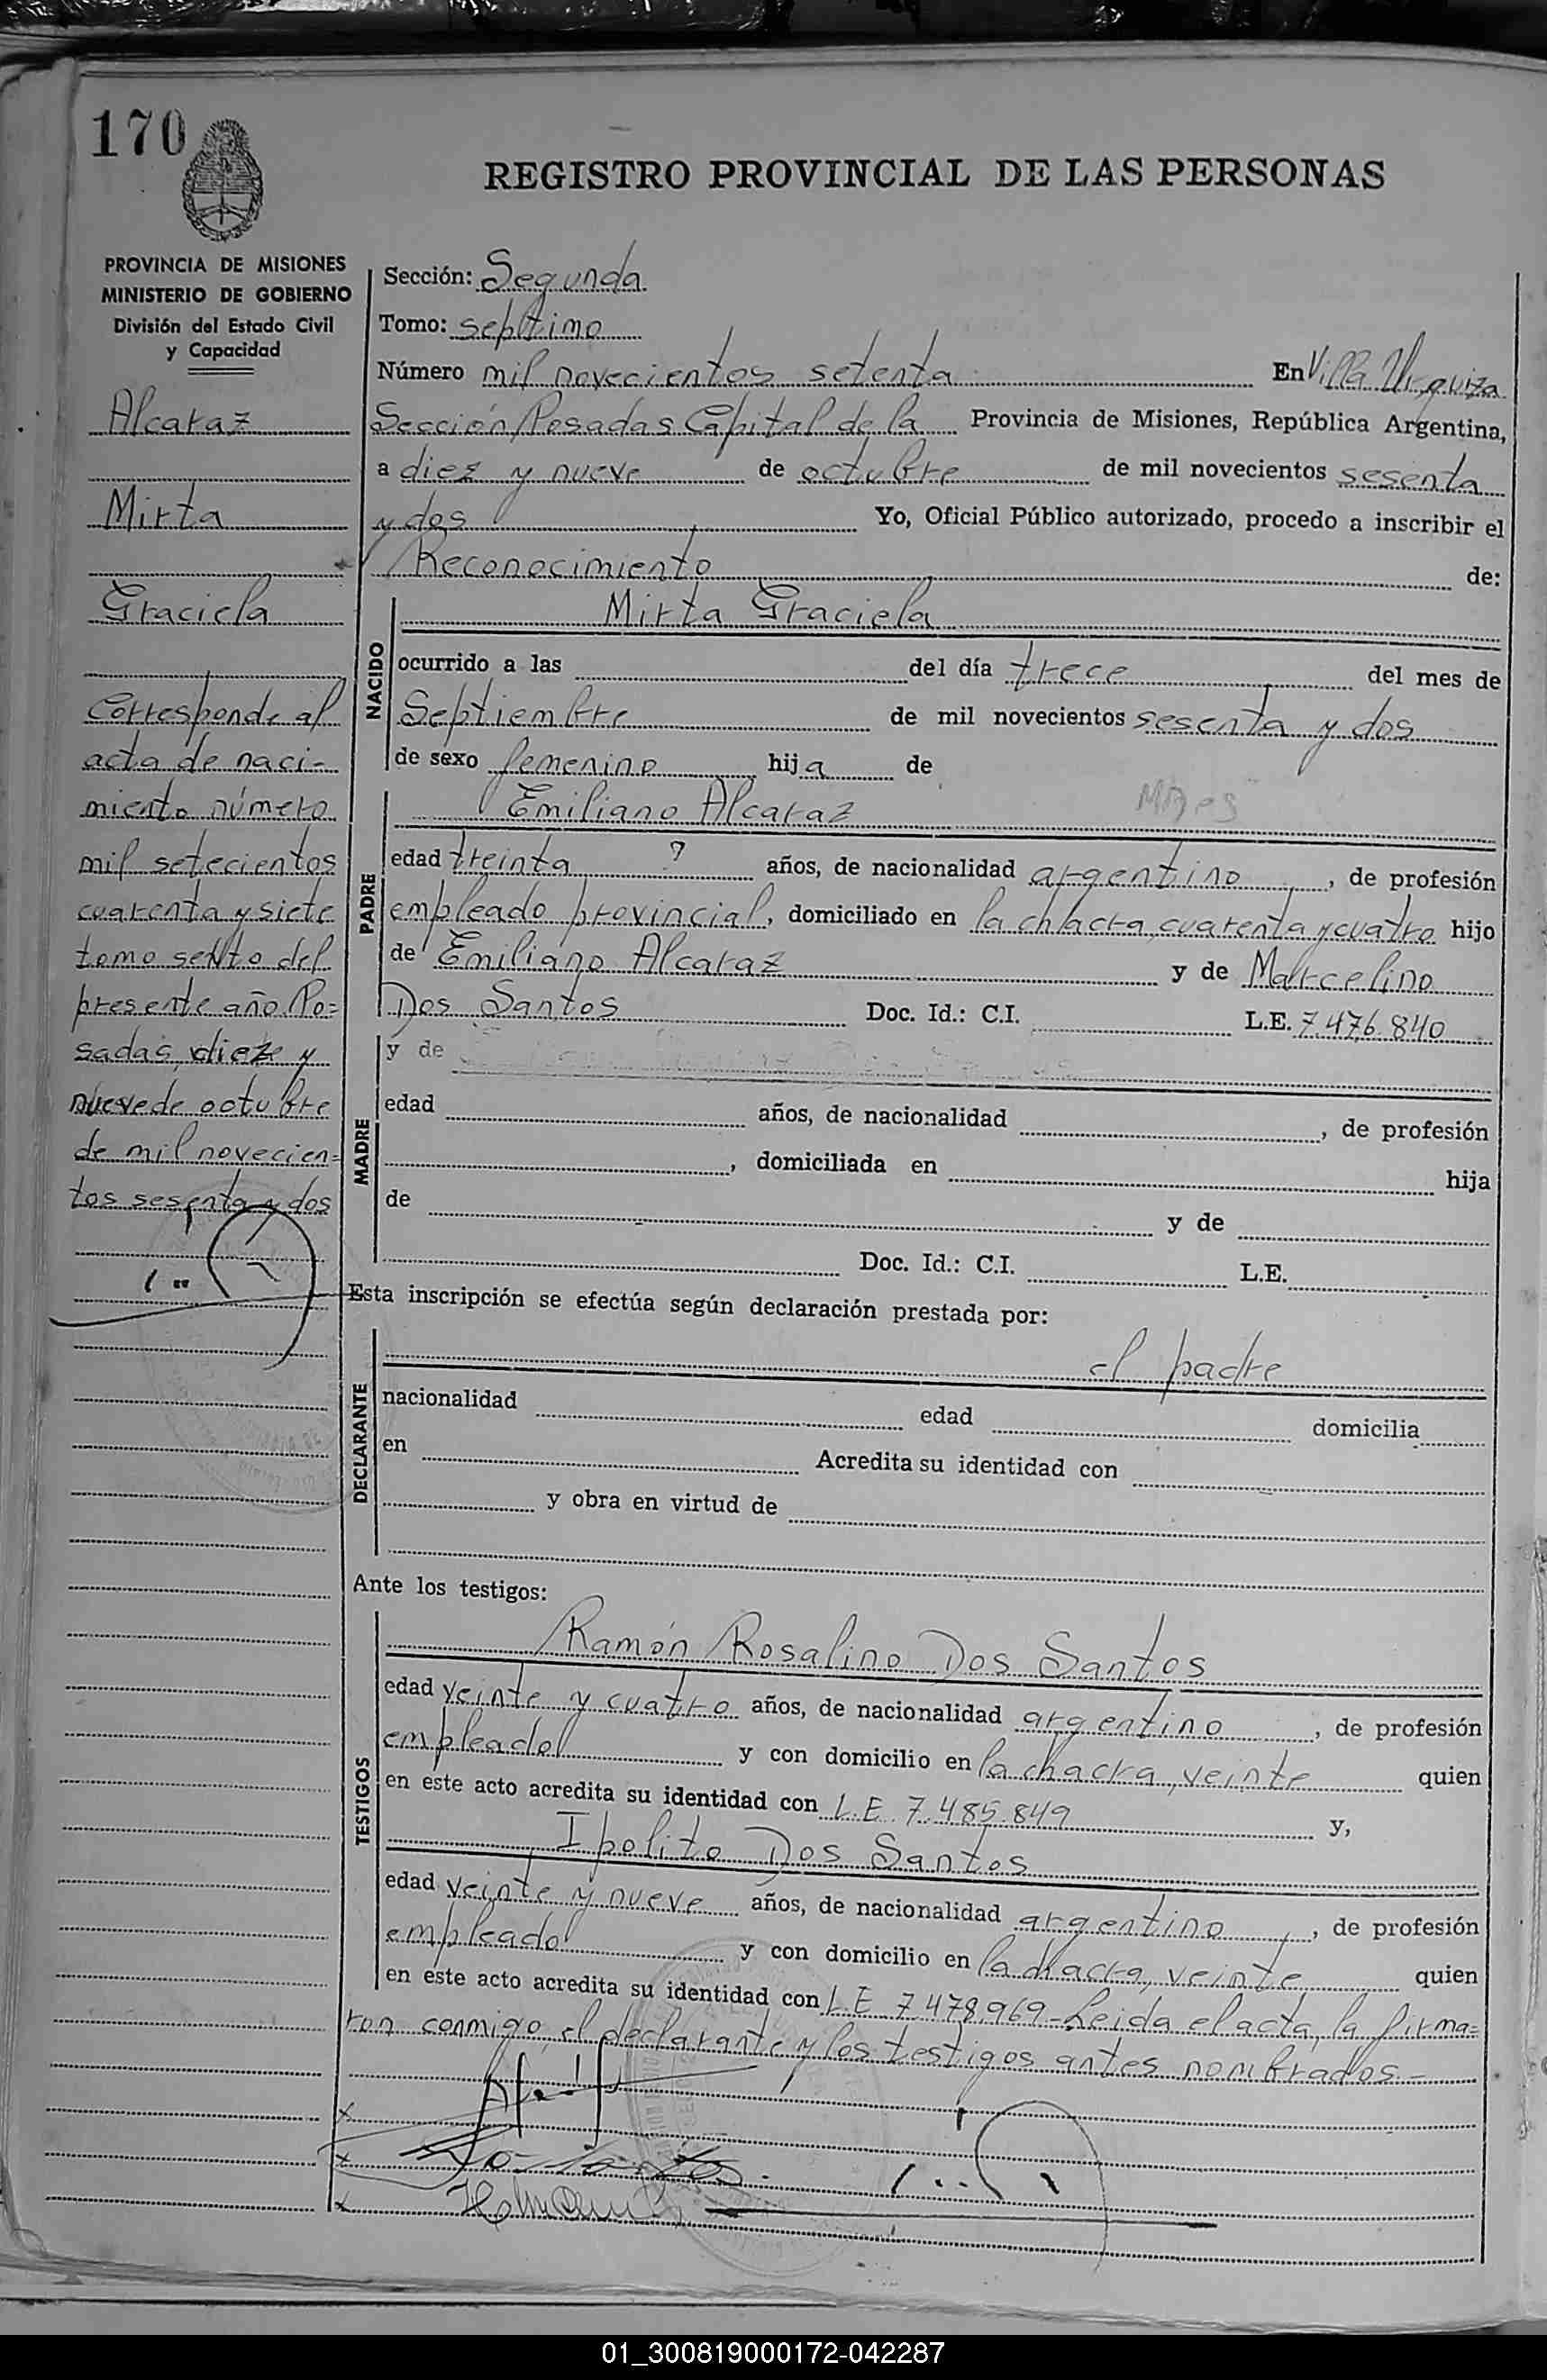 170
REGISTRO PROVINCIAL DE LAS PERSONAS
PROVINCIA DE MISIONES
MINISTERIO DE GOBIERNO
División del Estado Civil
y Capacidad
Alcaraz
Mirta
Graciela
Corresponde al
acta de naci-
miento número
mil setecientos
cuarenta y siete
tomo sexto del
presente año. Po=
sadas, diez y
nueve de octubre
de mil novecien=
tos sesenta y dos
Sección: Segunda
Tomo: septimo
Número mil novecientos setenta En Villa Urquiza
Sección Posadas Capital de la Provincia de Misiones, República Argentina,
a diez y nueve de octubre de mil novecientos sesenta
y dos Yo, Oficial Público autorizado, procedo a inscribir el
Reconocimiento de:
NACIDO
Mirta Graciela
ocurrido a las del día trece del mes de
Septiembre de mil novecientos sesenta y dos
de sexo femenino hija de
PADRE
Emiliano Alcaraz
edad treinta ? años, de nacionalidad argentino, de profesión
empleado provincial, domiciliado en la chacra cuarenta y cuatro hijo
de Emiliano Alcaraz y de Marcelino
Dos Santos Doc. Id.: C.I. L.E. 7.476.840
MADRE
y de
edad años, de nacionalidad , de profesión
, domiciliada en hija
de y de
Doc. Id.: C.I. L.E.
Esta inscripción se efectúa según declaración prestada por:
DECLARANTE
el padre
nacionalidad edad domicilia
en Acredita su identidad con
y obra en virtud de
Ante los testigos:
TESTIGOS
Ramón Rosalino Dos Santos
edad veinte y cuatro años, de nacionalidad argentino, de profesión
empleado y con domicilio en la chacra, veinte quien
en este acto acredita su identidad con L.E. 7.485.849 y,
Ipolito Dos Santos
edad veinte y nueve años, de nacionalidad argentino, de profesión
empleado y con domicilio en la chacra, veinte quien
en este acto acredita su identidad con L.E 7.478.969-Leida el acta, la firma=
ron conmigo, el declarante y los testigos antes nombrados.-
01_300819000172-042287